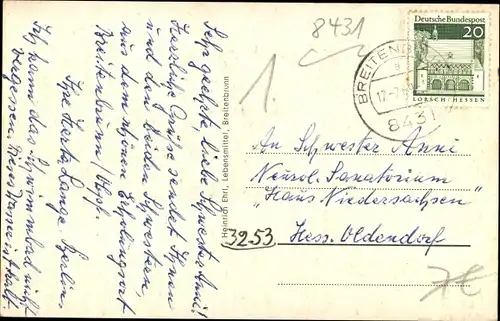 Sehr geehrte, liebe Schwester Anni!
Herzliche Grüße sendet Ihnen
und den beiden Schwestern,
aus dem schönen Erholungsort
Breitenbrunn/Opf.
Ihre Herta Lange, Berlin.
Ich kann das Schwimmbad nicht
vergessen. Dieses Wasser ist kalt.
Heinrich Ehrl, Lebensmittel, Breitenbrunn
8431
1.
BREITENB
17.
8431
Deutsche Bundespost
20
LORSCH/HESSEN
An Schwester Anni
Neurol. Sanatorium
„Haus Niedersachsen"
3253
Hess. Oldendorf